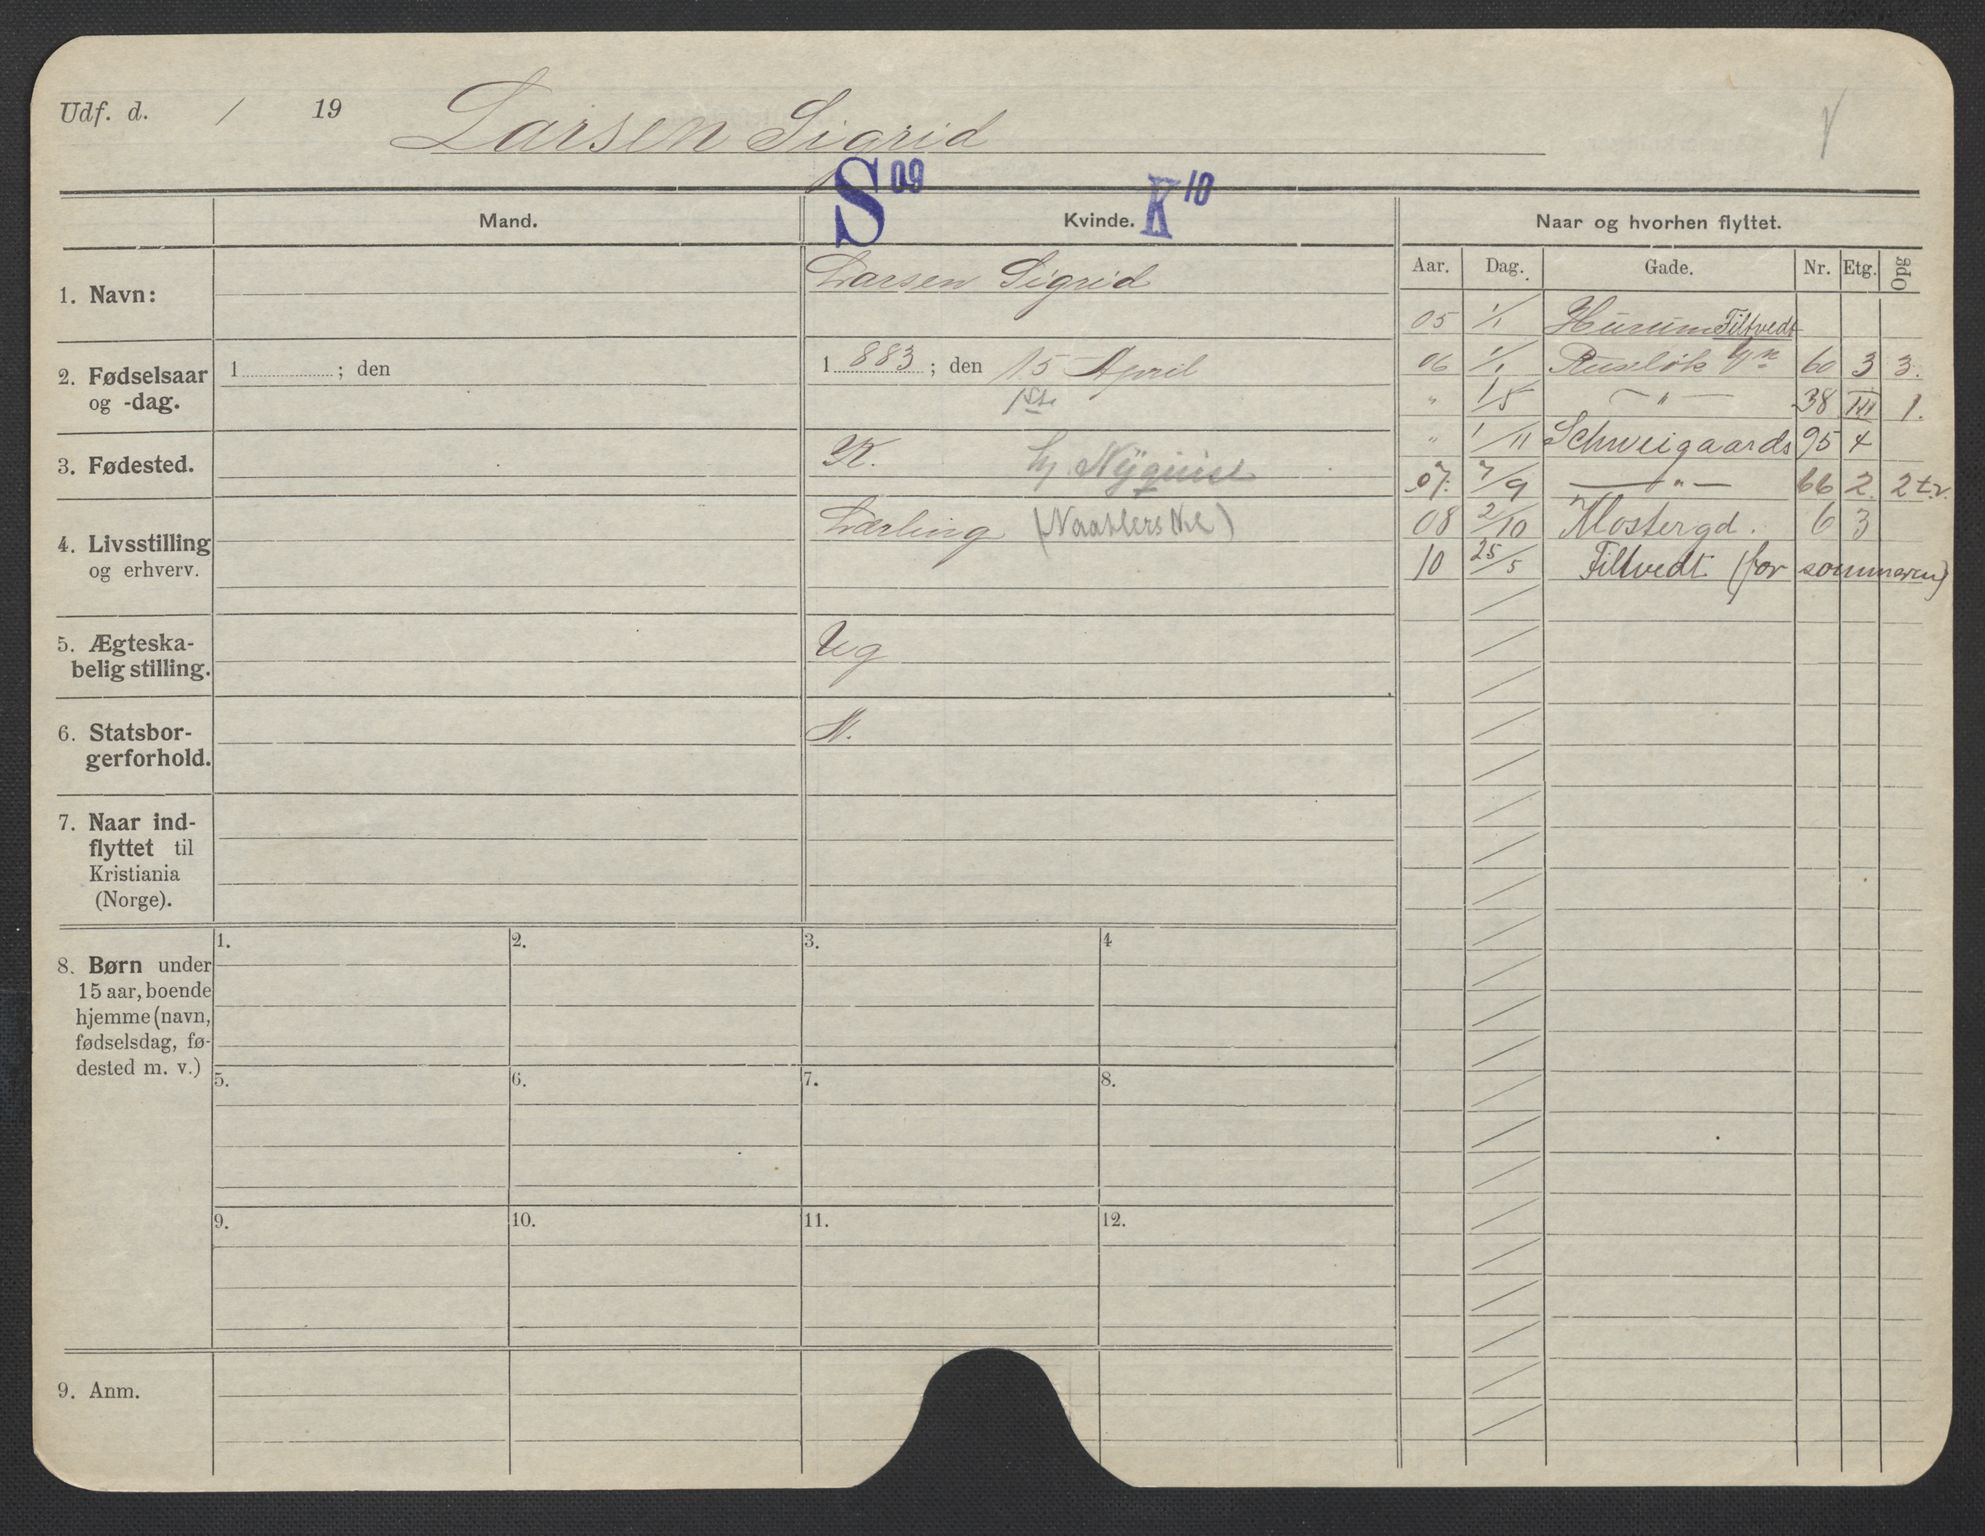 Udf. d. / 19 Larsen Sigrid
S 09 K 10
Mand. Kvinde. Naar og hvorhen flyttet.
Aar. Dag. Gade. Nr. Etg. Opg
1. Navn: Larsen Sigrid
2. Fødselsaar og -dag. 1 ; den 1 883 ; den 15 April
1ste
3. Fødested. K. Nÿquist
4. Livsstilling og erhverv. Lærling
5. Ægteska-
belig stilling. Ug
6. Statsbor-
gerforhold. N.
7. Naar ind-
flyttet til
Kristiania
(Norge).
05 1/1 Hurum Filtvedt
06 1/1 Ruseløk Vn 60 3 3.
" 1/5 — " — 38 III 1.
" 1/11 Schweigaards 95 4
07. 7/9 — " — 66 2. 2 t.v.
08 2/10 Klostergd. 6 3
10 25/5 Filtvedt (for sommeren)
8. Børn under
15 aar, boende
hjemme (navn,
fødselsdag, fø-
dested m. v.)
1. 2. 3. 4
5. 6. 7. 8.
9. 10. 11. 12.
9. Anm.